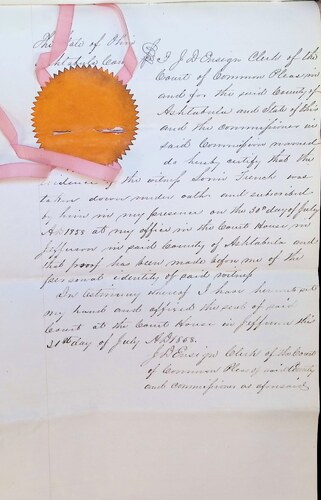 The State of Ohio
Ashtabula County
I J D Ensign Clerk of the
Court of Common Pleas in
and for the said County of
Ashtabula and State of Ohio
and the commissioner in
said Commission named
do hereby certify that the
evidence of the witness French was
taken down under oath and subscribed
by him in my presence on the 30th day of July
AD 1858 at my office in the Court House in
Jefferson in said County of Ashtabula and
that proof has been made before me of the
personal identity of said witness
In testimony whereof I have hereunto set
my hand and affixed the seal of said
Court at the Court House in Jefferson this
31st day of July AD 1858.
J D Ensign Clerk of the Court
of Common Pleas of said County
and commissioner as aforesaid